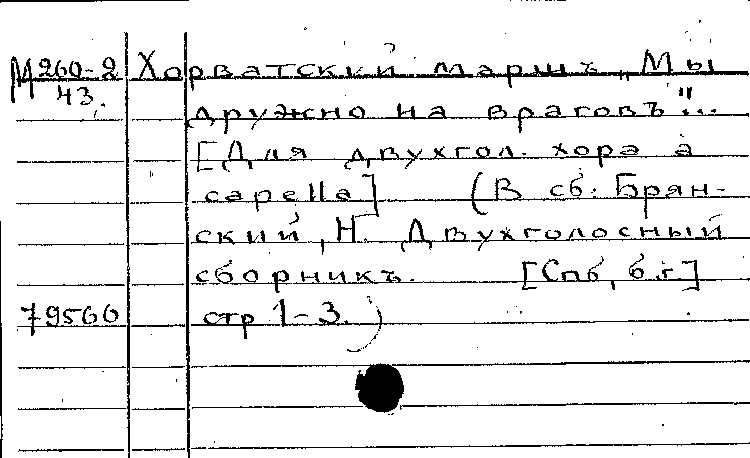 М260-2 Хорватский маршъ „Мы
43. дружно на враговъ"...
[Для двухгол. хора а
capella] (В сб: Брян-
ский, Н. Двухголосный
сборникъ. [Спб, б.г.]
79566 стр 1-3.)